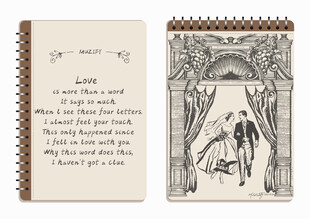 Love
is more than a word
It says so much.
When I see these four letters.
I almost feel your touch.
This only happened since
I fell in love with you.
Why this word does this,
I haven't got a clue.